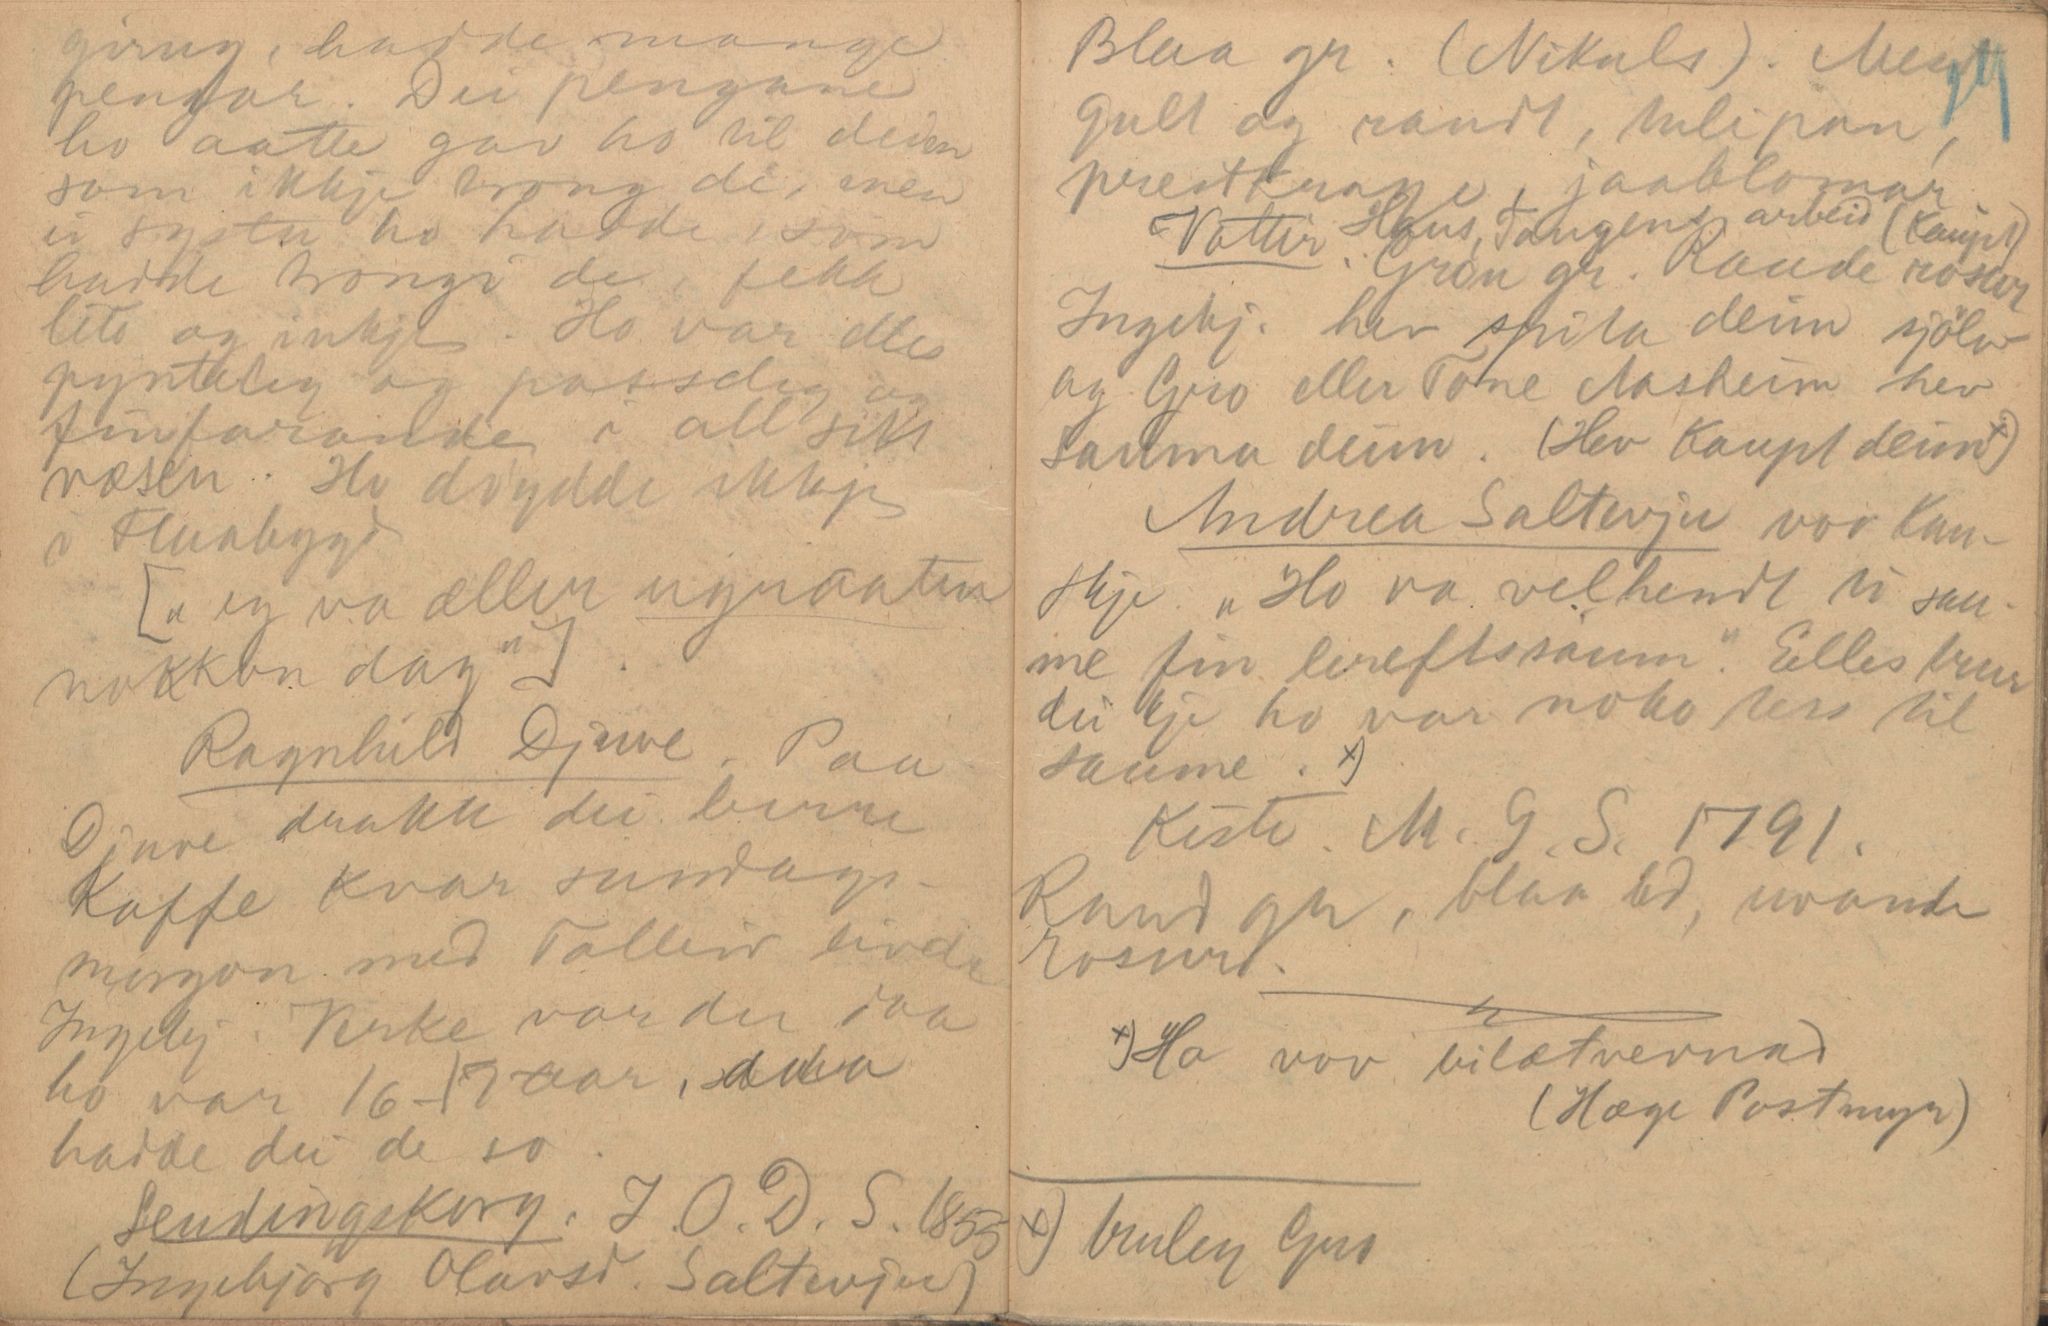 girug, hadde mange
pengar. Dei pengane
ho aatte gav ho til deim
som ikkje trong dé, men
ei syster ho hadde, som
hadde trongi de, fekk
lite og inkje. Ho var elles
pynteleg og passeleg og
finfarande i all sitt
væsen. Ho døydde ikkje
i Fluabygd
[„eg va æller ugraaten
nokkon dag"].
Ragnhild Djuve. Paa
Djuve drakk dei berre
Kaffe kvar sundags-
morgon med Tolleiv livde
Ingebj. Verke var der daa
ho var 16-17 aar, daa
hadde dei de so.
Sendingskorg. I. O. D. S. 1853
(Ingebjørg Olavsd. Saltevju)
Blaa gr. (Nikuls). Mest
gult og raudt, tulipan,
prestkrage, jaablomar
Vottir. Haus, Tangens arbeid (Kaupt)
Grøn gr. Raude rosur
Ingebj. hev spita deim sjølv
og Gro eller Tone Aasheim hev
sauma deim. (Hev Kaupt deim x)
Andrea Saltevju var kan-
skje. „Ho va velhendt ti sau-
me fin lereftssaum". Elles trur
dei kje ho var noko ters til
saume. x)
Kiste. M. G. S. 1791.
Raud gr, blaa ed,
rosur.
x) Ho var vilætvernad
(Hæge Postmyr)
x) truleg Gro